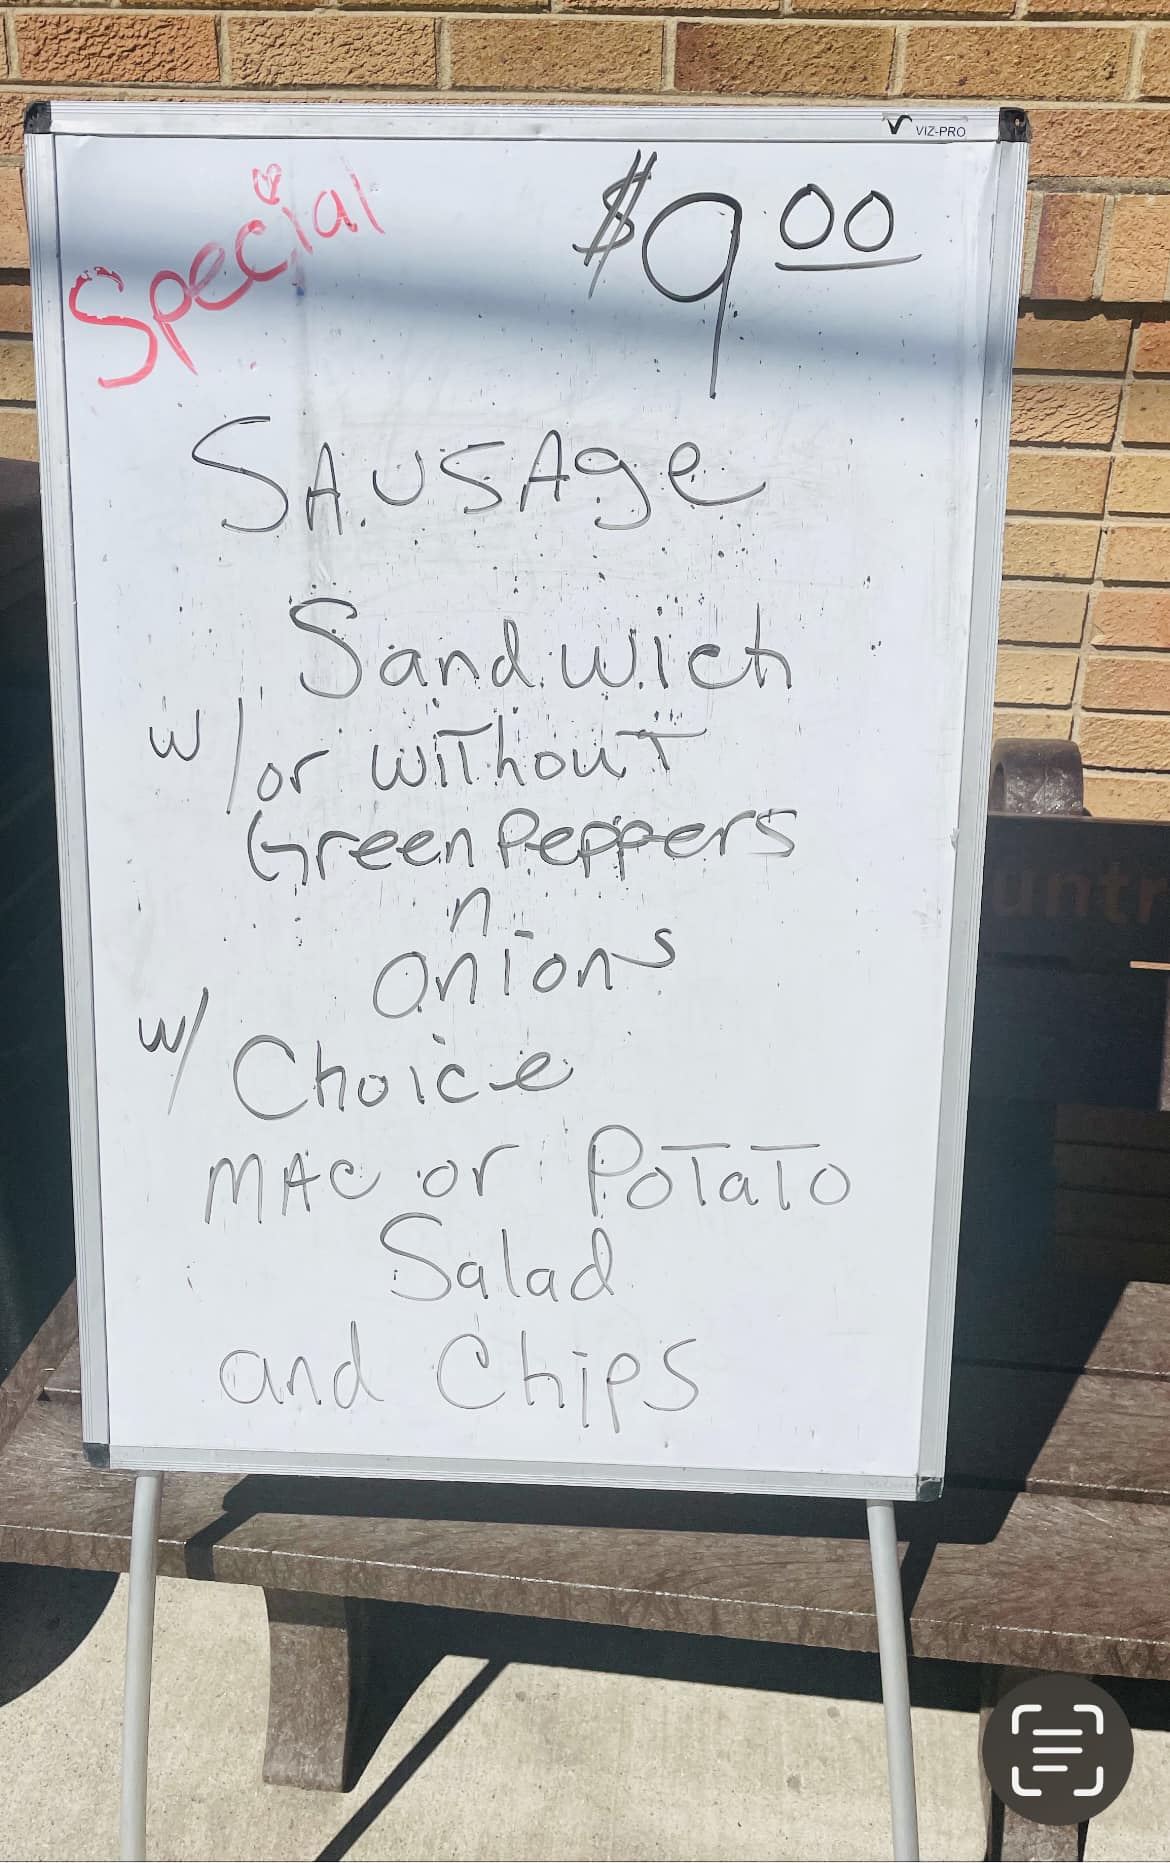 VIZ-PRO
Special
$9.00
SAUSAge
Sandwich
w/or wiThouT
Green Peppers
n
onions
w/ Choice
MAC or PoTaTo
Salad
and Chips
untr